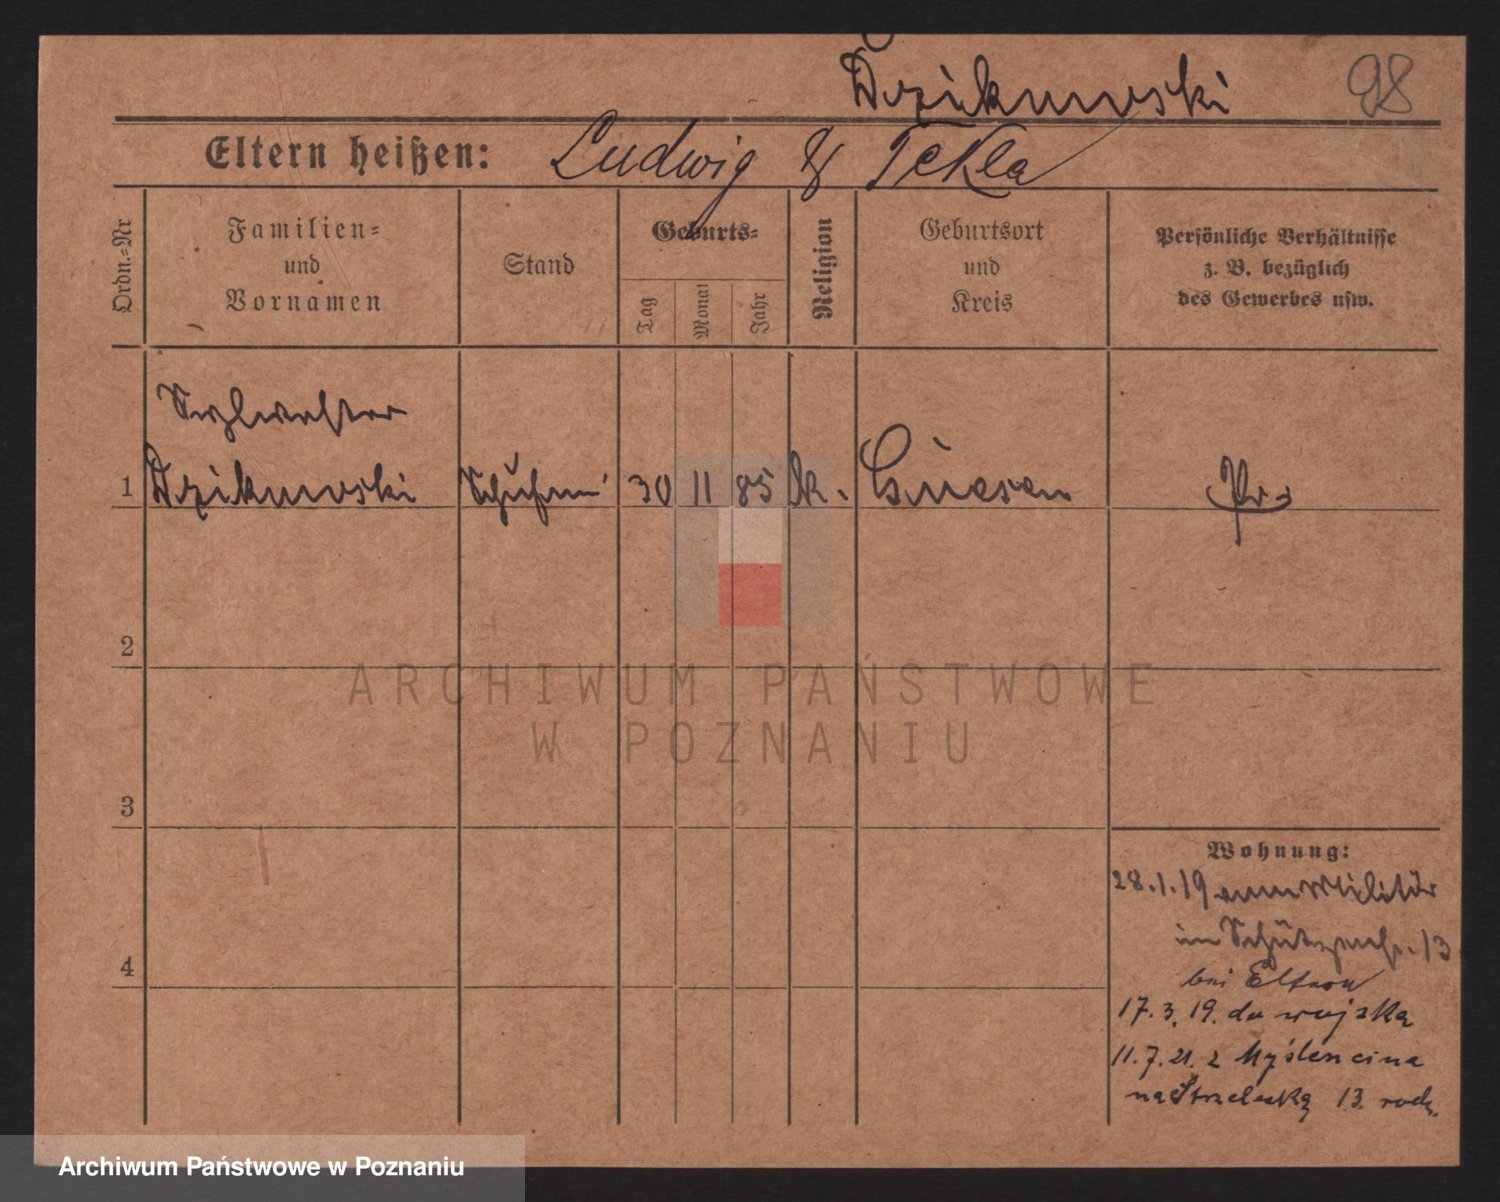 Dzikowski 98
Eltern heißen: Ludwig & Tekla
Ordn.-Nr
Familien-
und
Vornamen
Stand
Geburts-
Tag
Monat
Jahr
Religion
Geburtsort
und
Kreis
Persönliche Verhältnisse
z. B. bezüglich
des Gewerbes usw.
Sylvester
1 Dzikowski Schuhm 30 11 85 k. Gnesen Pr.
2
3
4
Wohnung:
28.1.19 vom Militär
im Schützenstr. 13
bei Eltern
17.3.19. do wojska
11.7.21. z Myślencina
na Strzelecką 13. rodz.
ARCHIWUM PAŃSTWOWE
W POZNANIU
Archiwum Państwowe w Poznaniu